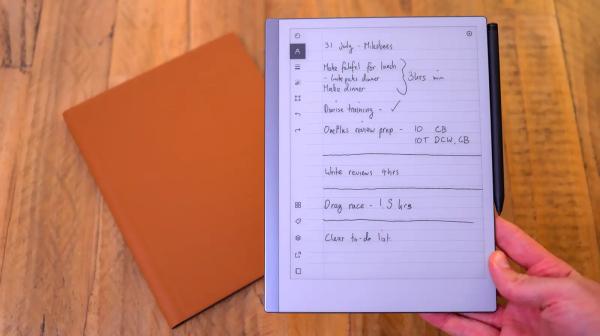 31 July - Milestones
Make falafel for lunch
- Intepats dinner
Make dinner
3hrs min
Denise training - ✓
OnePlus review prep - 10 CB
10T DCW, CB
Write reviews 4hrs
Drag race - 1.5 hrs
Clear to-do list